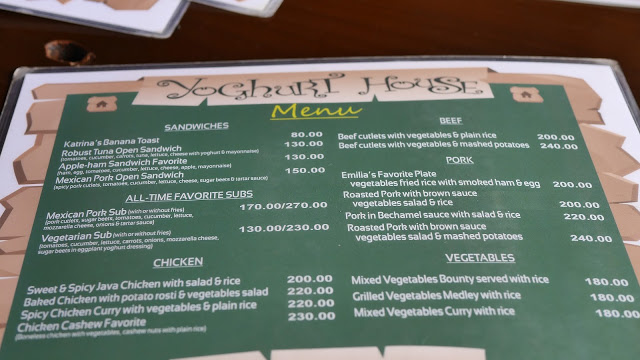 YOGHURT HOUSE
Menu
SANDWICHES
Katrina's Banana Toast 80.00
Robust Tuna Open Sandwich 130.00
(tomatoes, cucumber, carrots, tuna, lettuce, cheese with yoghurt & mayonnaise)
Apple-ham Sandwich Favorite 130.00
(ham, egg, tomatoes, cucumber, lettuce, cheese, apple, mayonnaise)
Mexican Pork Open Sandwich 150.00
(spicy pork cutlets, tomatoes, cucumber, lettuce, cheese, sugar beets & tartar sauce)
ALL-TIME FAVORITE SUBS
Mexican Pork Sub (with or without fries) 170.00/270.00
(pork cutlets, sugar beets, tomatoes, cucumber, lettuce,
mozzarella cheese, onions & tartar sauce)
Vegetarian Sub (with or without fries) 130.00/230.00
(tomatoes, cucumber, lettuce, carrots, onions, mozzarella cheese,
sugar beets in eggplant yoghurt dressing)
CHICKEN
Sweet & Spicy Java Chicken with salad & rice 200.00
Baked Chicken with potato rosti & vegetables salad 220.00
Spicy Chicken Curry with vegetables & plain rice 220.00
Chicken Cashew Favorite 230.00
(Boneless chicken with vegetables, cashew nuts with plain rice)
BEEF
Beef cutlets with vegetables & plain rice 200.00
Beef cutlets with vegetables & mashed potatoes 240.00
PORK
Emilia's Favorite Plate
vegetables fried rice with smoked ham & egg 200.00
Roasted Pork with brown sauce
vegetables salad & rice 200.00
Pork in Bechamel sauce with salad & rice 220.00
Roasted Pork with brown sauce
vegetables salad & mashed potatoes 240.00
VEGETABLES
Mixed Vegetables Bounty served with rice 180.00
Grilled Vegetables Medley with rice 180.00
Mixed Vegetables Curry with rice 180.00